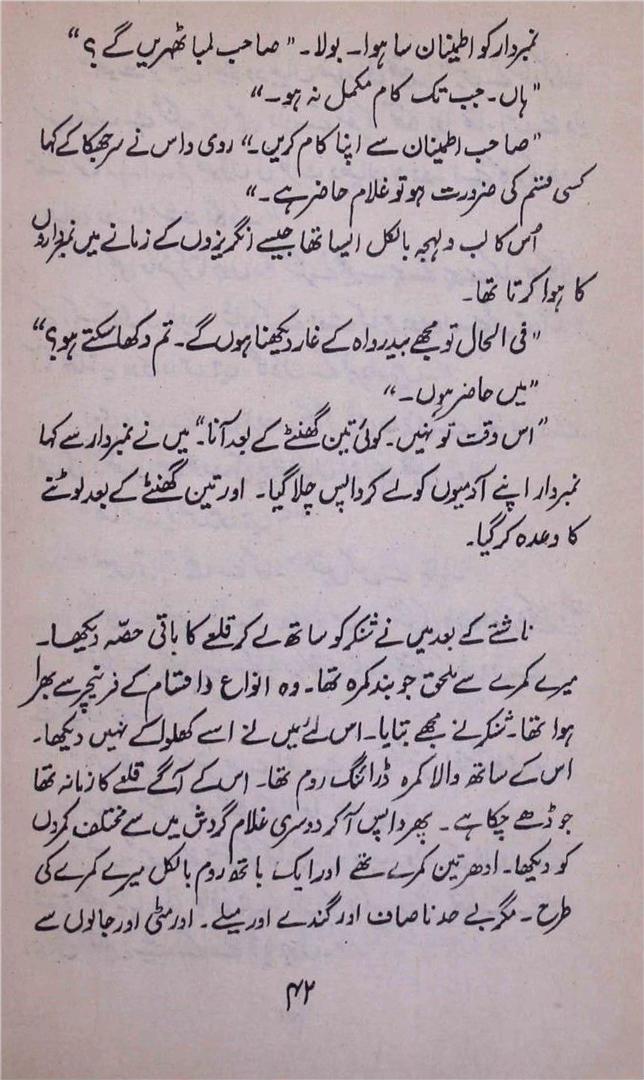 نمبردار کو اطمینان سا ہوا۔ بولا۔ "صاحب لمبا ٹھہریں گے؟"
"ہاں۔ جب تک کام مکمل نہ ہو۔"
"صاحب اطمینان سے اپنا کام کریں۔" روی داس نے سر جھکا کے کہا
کسی قسم کی ضرورت ہو تو غلام حاضر ہے۔"
اُس کا لب و لہجہ بالکل ایسا تھا جیسے انگریزوں کے زمانے میں نمبرداروں
کا ہوا کرتا تھا۔
"فی الحال تو مجھے بیدرواہ کے غار دیکھنا ہوں گے۔ تم دکھا سکتے ہو؟"
"میں حاضر ہوں۔"
"اس وقت تو نہیں۔ کوئی تین گھنٹے کے بعد آنا۔" میں نے نمبردار سے کہا
نمبردار اپنے آدمیوں کو لے کر واپس چلا گیا۔ اور تین گھنٹے کے بعد لوٹنے
کا وعدہ کر گیا۔
ناشتے کے بعد میں نے شنکر کو ساتھ لے کر قلعے کا باقی حصّہ دیکھا۔
میرے کمرے سے ملحق جو بند کمرہ تھا۔ وہ انواع و اقسام کے فرنیچر سے بھرا
ہوا تھا۔ شنکر نے مجھے بتایا۔ اس لئے میں نے اسے کھلوا کے نہیں دیکھا۔
اس کے ساتھ والا کمرہ ڈرائنگ روم تھا۔ اس کے آگے قلعے کا زمانہ تھا
جو ڈھے چکا ہے۔ پھر واپس آ کر دوسری غلام گردش میں سے مختلف کمروں
کو دیکھا۔ ادھر تین کمرے تھے اور ایک باتھ روم بالکل میرے کمرے کی
طرح۔ مگر بے حد ناصاف اور گندے اور میلے۔ اور مٹی اور جالوں سے
۴۲